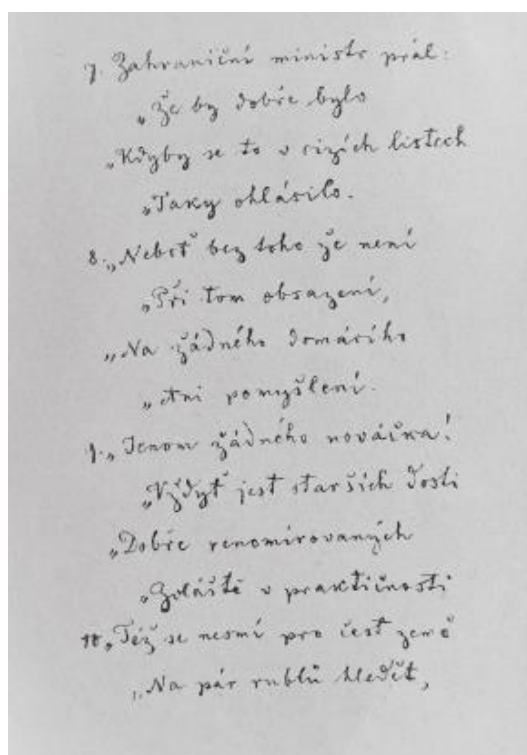 7. Zahraniční ministr prál:
„Že by dobře bylo
„Kdyby se to v cizích listech
„Taky ohlásilo.
8. „Neboť bez toho že není
„Při tom obsazení,
„Na žádného domácího
„Ani pomyšlení.
9. „Jenom žádného nováčka!
„Vždyť jest starších dosti
„Dobře renomirovaných
„Zvláště v praktičnosti
10. „Též se nesmí pro čest země
„Na pár rublů hledět,